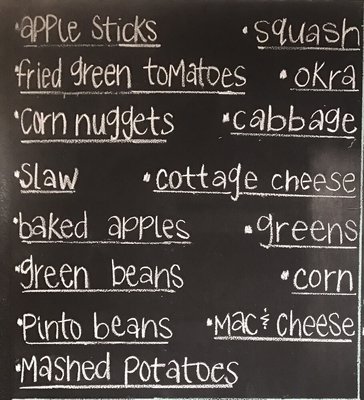 ·apple Sticks ·squash
·fried green tomatoes ·okra
·Corn nuggets ·cabbage
·Slaw ·cottage cheese
·baked apples ·greens
·green beans ·corn
·Pinto beans ·Mac & Cheese
·Mashed Potatoes